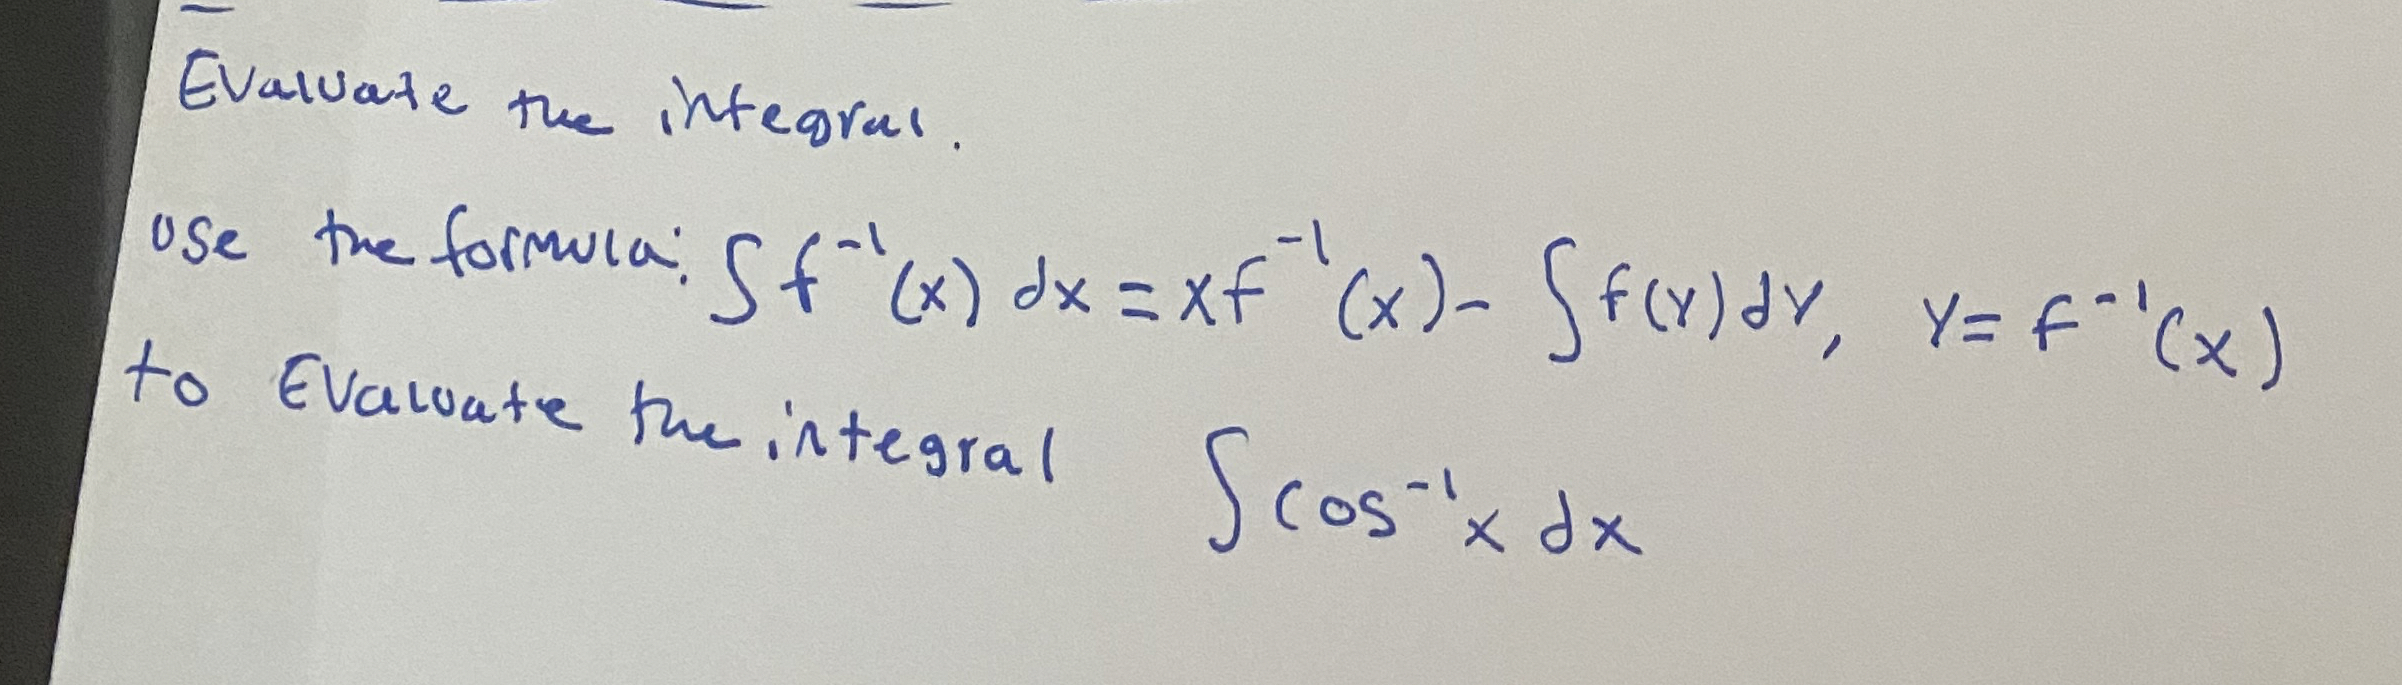 Evaluate the integral.
use the formula: ∫ f⁻¹(x) dx = xf⁻¹(x) - ∫ f(y) dy, y = f⁻¹(x)
to Evaluate the integral ∫ cos⁻¹x dx